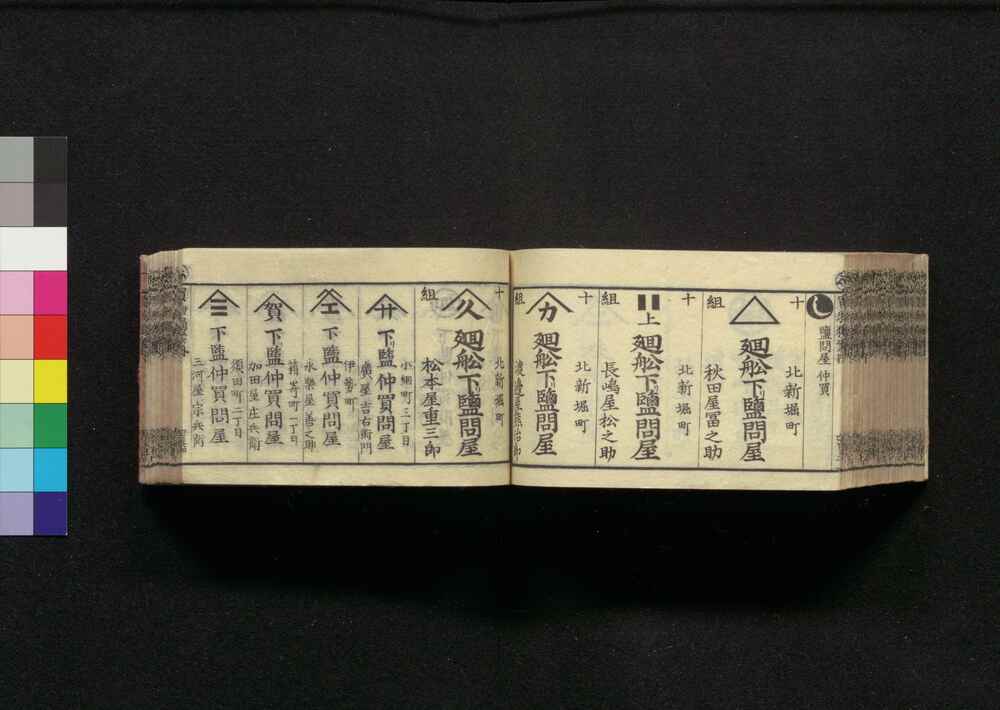 鹽問屋 仲買
十 北新堀町
廻舩下鹽問屋
組 秋田屋冨之助
十 北新堀町
上 廻舩下鹽問屋
組 長嶋屋松之助
十 北新堀町
カ 廻舩下鹽問屋
組 渡邉屋熊治郎
十 北新堀町
久 廻舩下鹽問屋
組 松本屋重三郎
小網町三丁目
廾 下鹽仲買問屋
廣屋吉右衛門
伊勢町
エ 下鹽仲買問屋
永樂屋善之助
賀 下鹽仲買問屋
加田屋庄兵衛
須田町二丁目
三 下鹽仲買問屋
三河屋宗兵衛